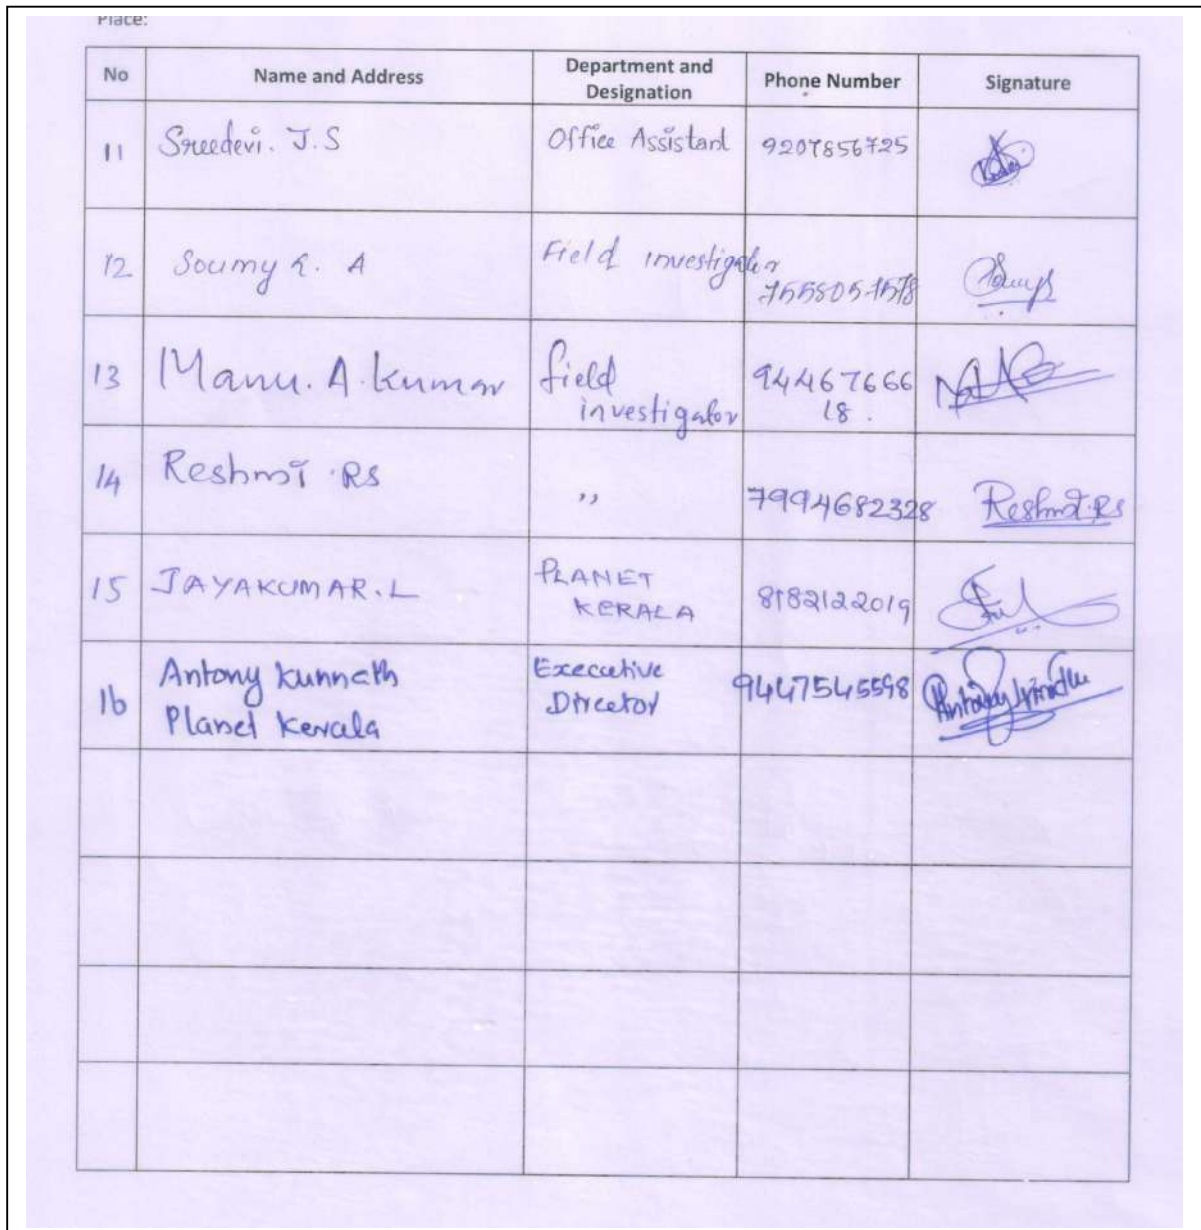 Place:
No Name and Address Department and Designation Phone Number Signature
11 Sreedevi. J.S Office Assistant 9207856725
12 Soumy R. A Field investigator
13 Manu. A. Kumar field investigator 9446766618.
14 Reshmi RS ,, 7994682328 Reshmi RS
15 JAYAKUMAR. L PLANET KERALA 8182122019
16 Antony Kunnath Executive 9447545598
Planet Kerala Director